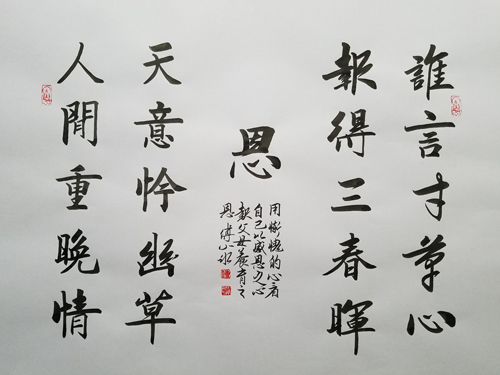 誰言寸草心
報得三春暉
恩
用慚愧的心看
自己以感恩之心
報父母養育之
恩
天意怜幽草
人閒重晚情